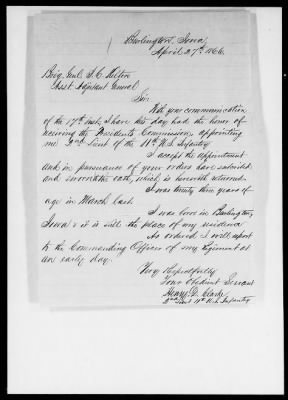 Burlington, Iowa,
April 27th 1866.
Brig. Genl. J. C. Kelton
Asst. Adjutant General
Sir:
With your communication
of the 17th inst., I have this day had the honor of
receiving the Presidents Commission, appointing
me 2nd Lieut of the 11th U.S. Infantry.
I accept the appointment
and in pursuance of your orders have
and the oath, which is herewith returned.
I was twenty three years of
age in March last.
I was born in Burlington,
Iowa & it is still the place of my residence
As ordered I will report
to the Commanding Officer of my Regiment at
an early day.
Very Respectfully
Your Obedient Servant
Henry G. Clarke
2nd Lieut 11th U.S. Infantry